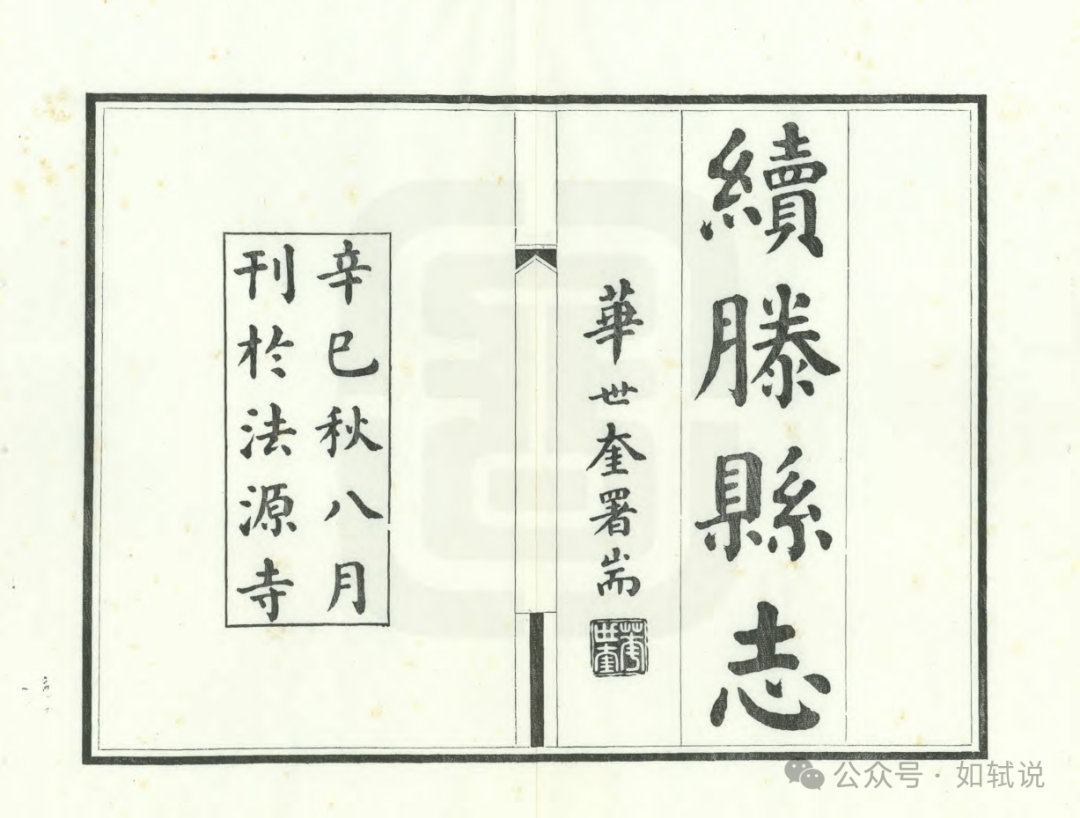 續滕縣志
華世奎署耑
華世奎
辛巳秋八月
刊於法源寺
公众号·如轼说